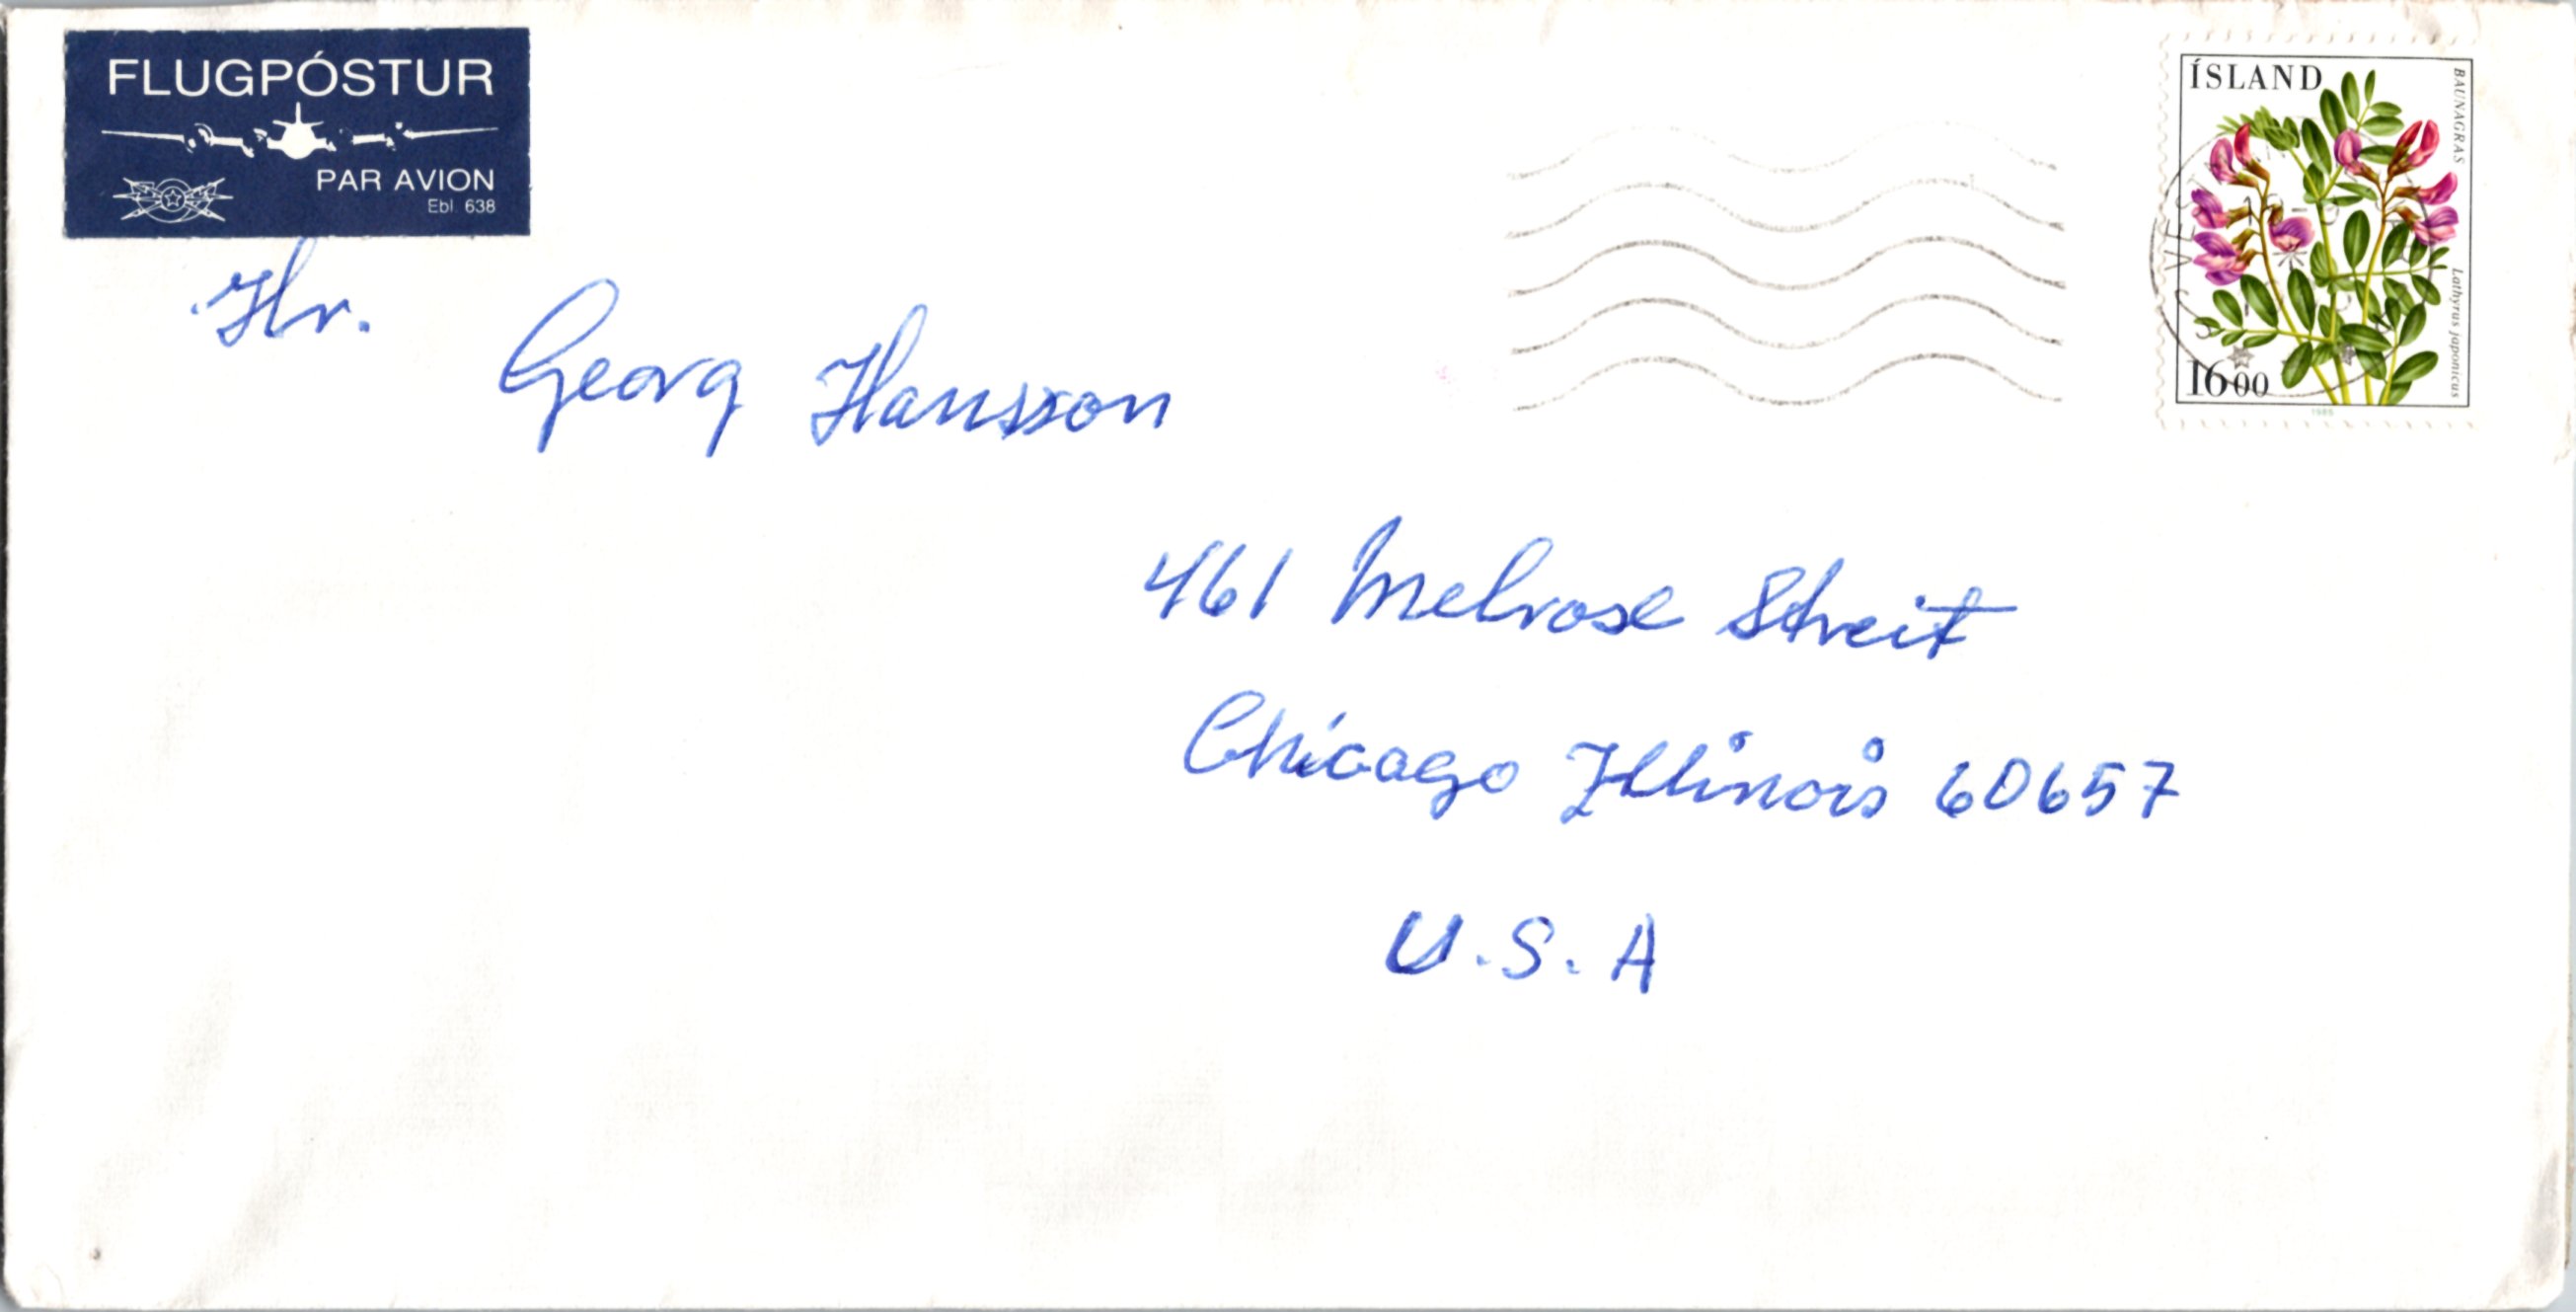 FLUGPÓSTUR
PAR AVION
Ebl. 638
ÍSLAND
BAUNAGRAS
Lathyrus japonicus
1600
1985
Hr.
Georg Hansson
461 Melrose Streit
Chicago Illinois 60657
U.S.A